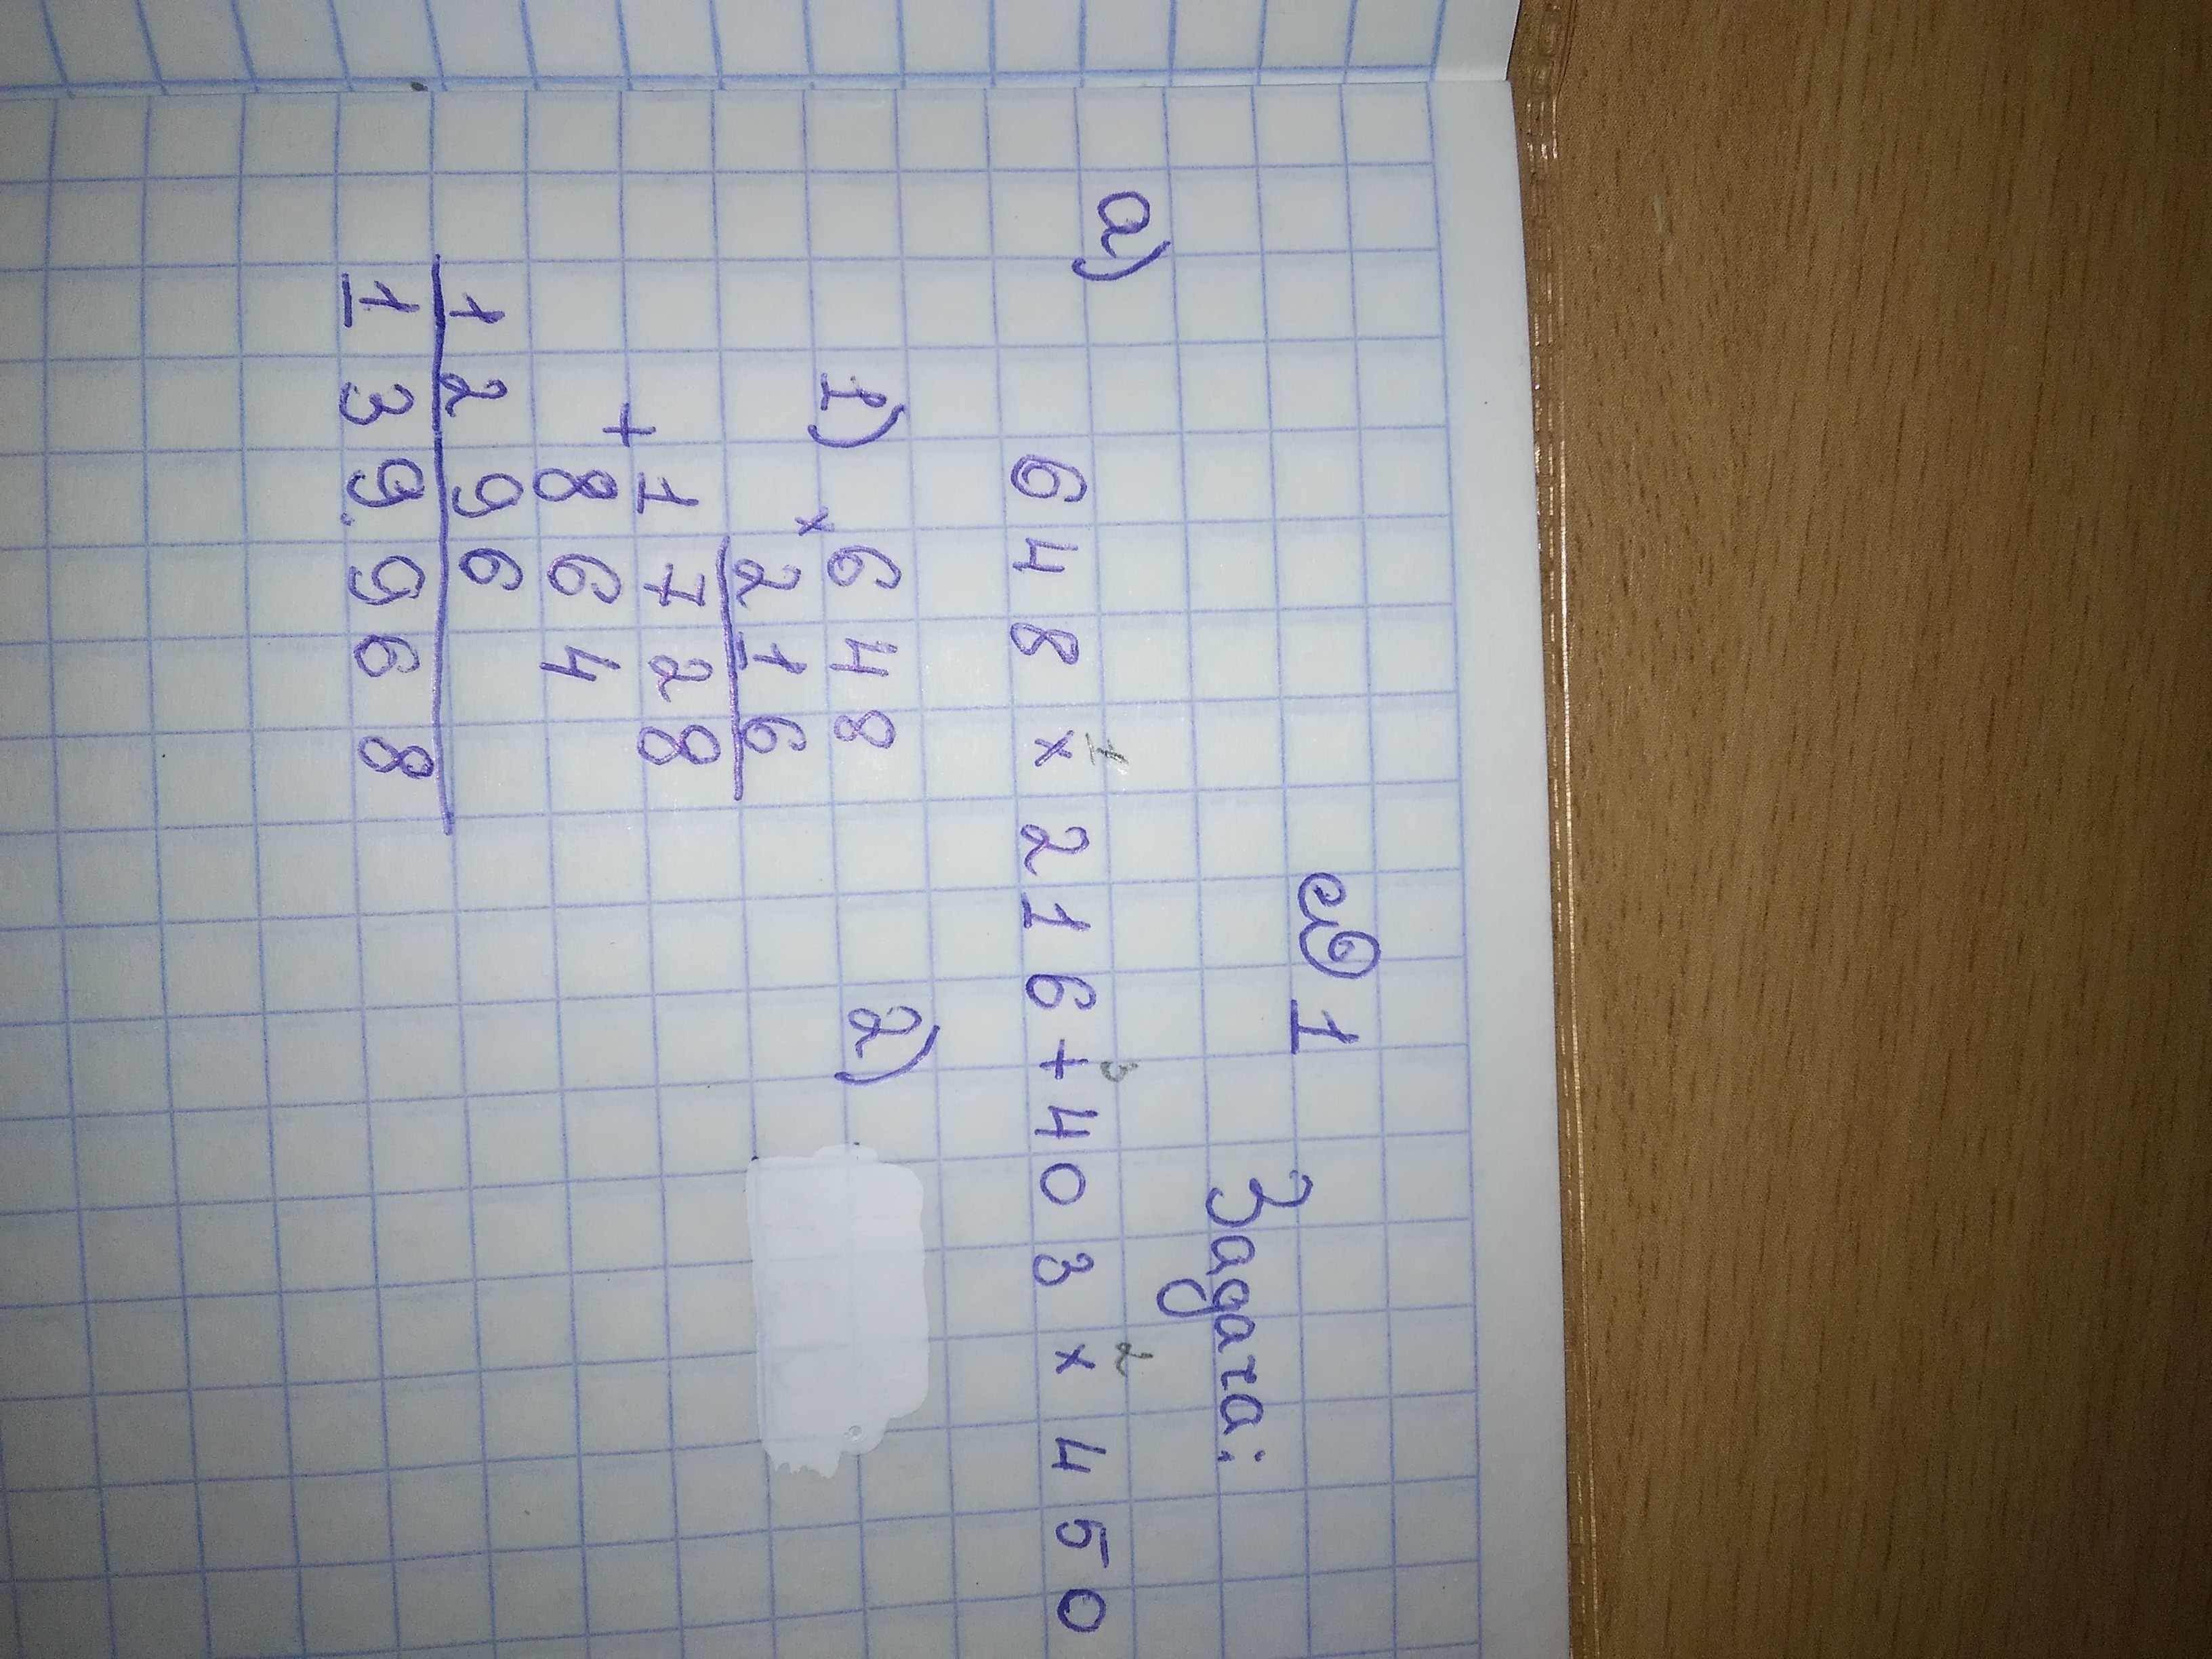 № 1
Задача:
а)
1 3 2
648 × 216 + 403 × 450
1) × 648 2)
216
1728
+ 864
1296
139.968